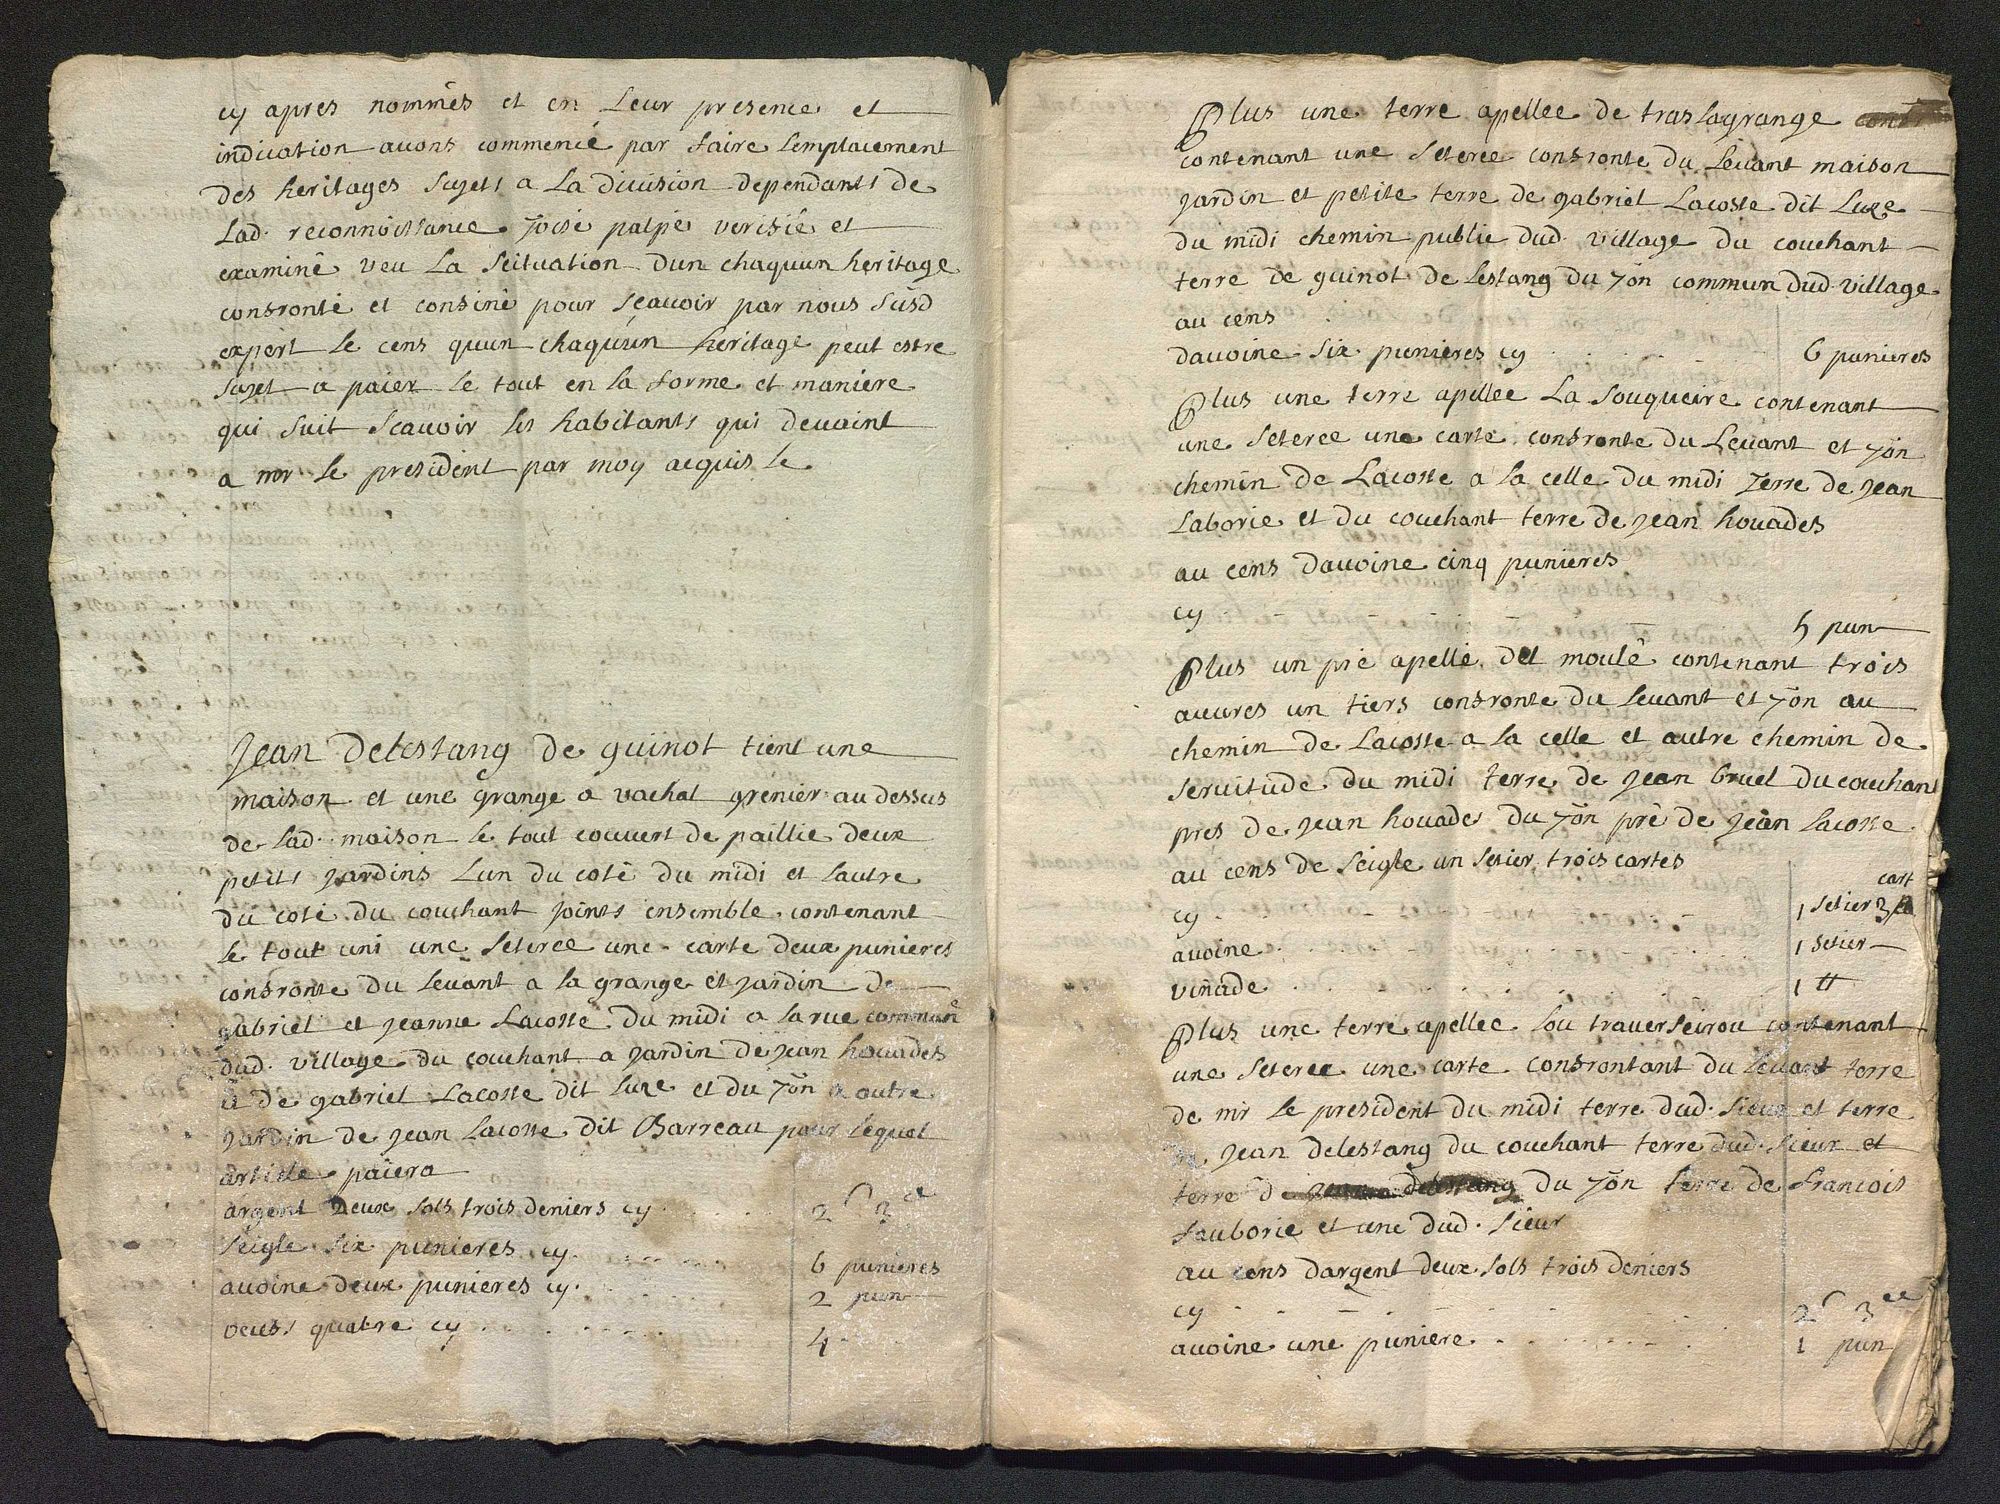 cy apres nommés et en Leur presence et
indication avons commencé par faire Lemplacement
des heritages sujets a La division dependants de
Lad. reconnoissance Toisé palpé verifié et
examiné veu La scituation dun chaquun heritage
confronté et confiné pour sçavoir par nous susd
expert Le cens quun chaquun heritage peut estre
sujet a paier Le tout en la forme et maniere
qui suit scavoir les habitants qui devaint
a mr le president par moy acquis le
Jean Delestang de guinot tient une
maison et une grange a vachat grenier au dessus
de Lad. maison le tout couvert de paillie deux
petits jardins Lun du coté du midi et lautre
du coté du couchant joints ensemble contenant
le tout uni une seteree une carte deux punieres
confronte du levant a la grange et jardin de
gabriel et jeanne Lacoste du midi a la rue commune
dud. village du couchant a jardin de jean houades
a de gabriel Lacoste dit Luxe et du 7ôn a autre
jardin de jean Lacoste dit Barreau pour lequel
article paiera
argent deux sols trois deniers cy 2s 3d
seigle six punieres cy. 6 punieres
avoine deux punieres cy. 2 pun
oeufs quatre cy 4
Plus une terre apellee de traslagrange
contenant une seteree confronte du levant maison
jardin et petite terre de gabriel Lacoste dit Luxe
du midi chemin public dud. village du couchant
terre de guinot de Lestang du 7ôn commun dud village
au cens
davoine six punieres cy 6 punieres
Plus une terre apellee La souqueire contenant
une seteree une carte confronte du Levant et 7ôn
chemin de Lacoste a la celle du midi Terre de jean
Laborie et du couchant terre de jean houades
au cens davoine cinq punieres
cy 5 pun
Plus un pré apellé del moulé contenant trois
auvres un tiers confronte du levant et 7ôn au
chemin de Lacoste a la celle et autre chemin de
servitude du midi terre de jean bruel du couchant
pres de jean houades du 7ôn pré de jean Lacoste
au cens de seigle un setier trois cartes
cy 1 setier 3 cart
avoine 1 setier
vinade 1 #
Plus une terre apellee lou traverseirou contenant
une seteree une carte confrontant du levant terre
de mr le president du midi terre dud. sieur et terre
jean delestang du couchant terre dud. sieur et
terre d jean delestang du 7ôn terre de françois
Lauborie et une dud. sieur
au cens dargent deux sols trois deniers
cy 2s 3d
avoine une puniere 1 pun